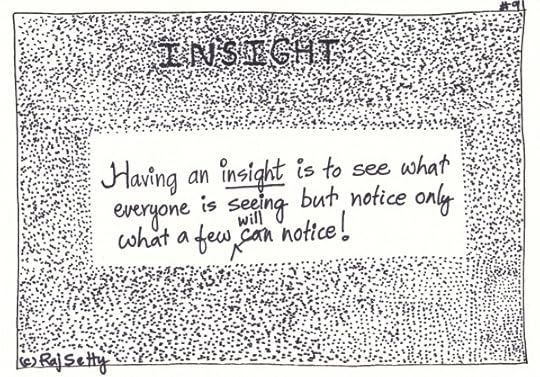 #91
INSIGHT
Having an insight is to see what
everyone is seeing but notice only
will
what a few can notice!
(c) Raj Setty